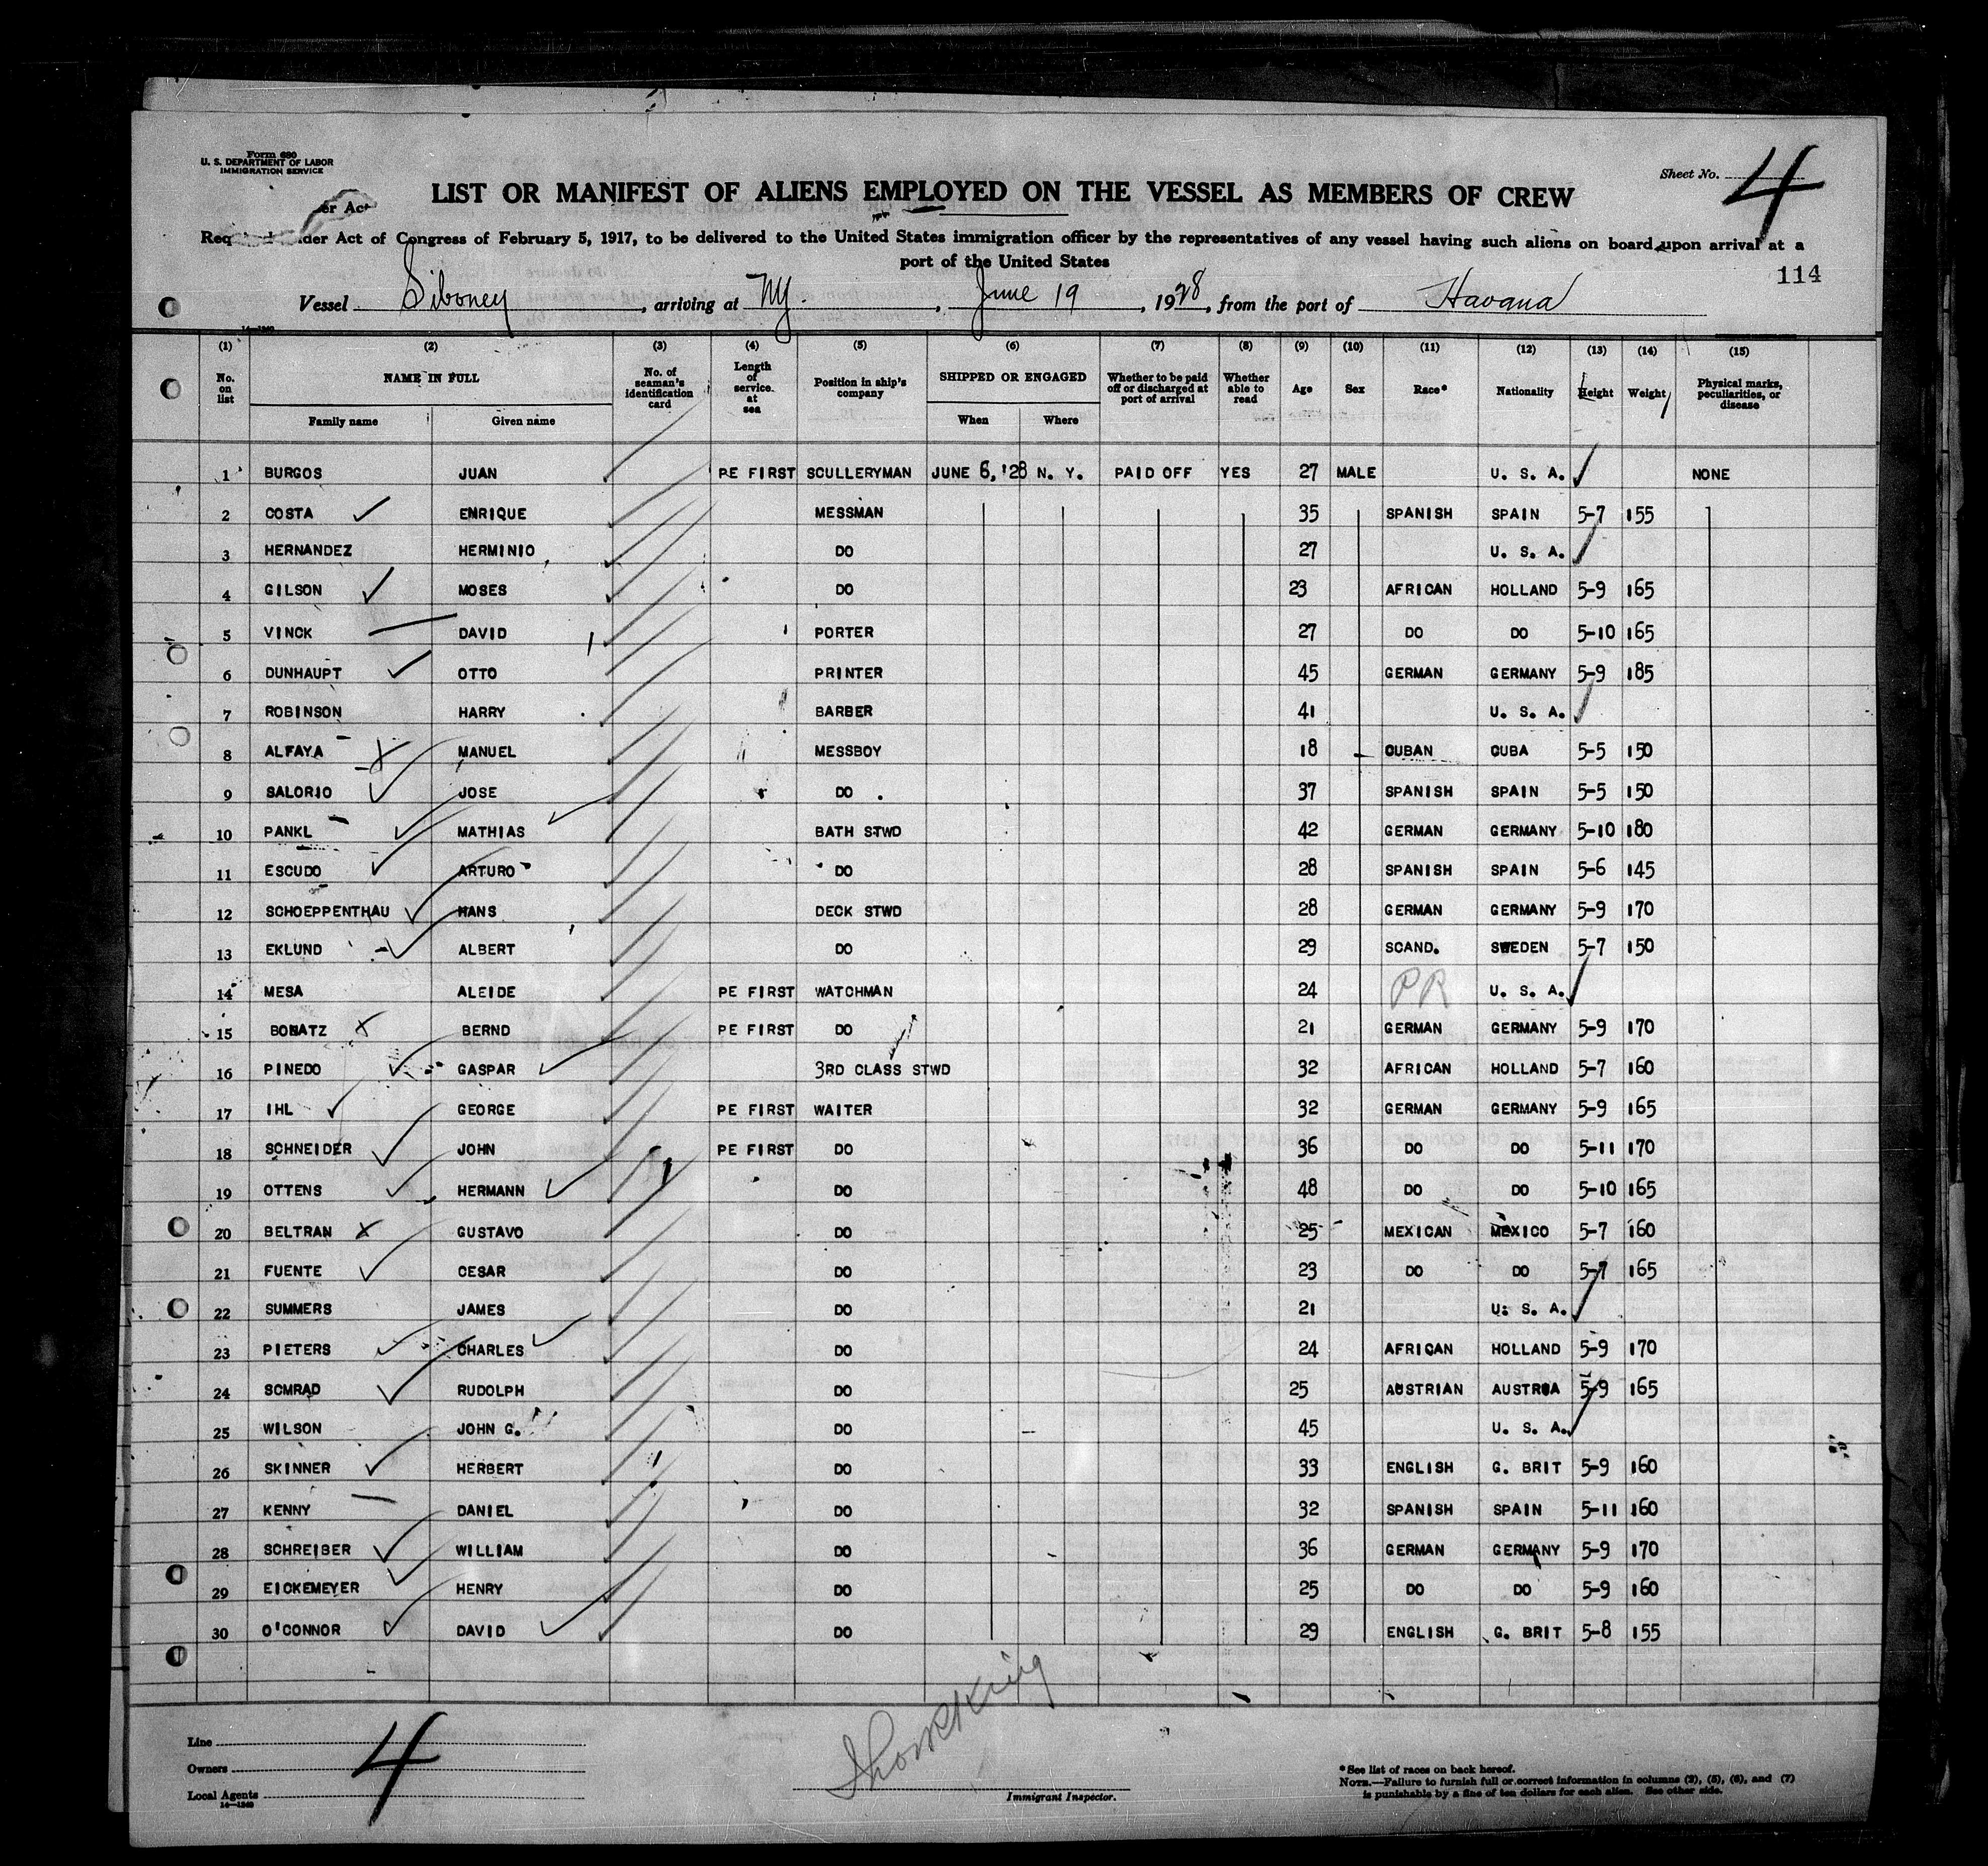 Form 680
U. S. DEPARTMENT OF LABOR
IMMIGRATION SERVICE
Sheet No. 4
LIST OR MANIFEST OF ALIENS EMPLOYED ON THE VESSEL AS MEMBERS OF CREW
er Act
Req der Act of Congress of February 5, 1917, to be delivered to the United States immigration officer by the representatives of any vessel having such aliens on board upon arrival at a
port of the United States
114
Vessel Siboney, arriving at NY., June 19, 1928, from the port of Havana
14—1240
(1) (2) (3) (4) (5) (6) (7) (8) (9) (10) (11) (12) (13) (14) (15)
No. on list NAME IN FULL Family name Given name No. of seaman's identification card Length of service at sea Position in ship's company SHIPPED OR ENGAGED When Where Whether to be paid off or discharged at port of arrival Whether able to read Age Sex Race* Nationality Height Weight Physical marks, peculiarities, or disease
1 BURGOS JUAN PE FIRST SCULLERYMAN JUNE 6, '28 N. Y. PAID OFF YES 27 MALE U. S. A. NONE
2 COSTA ENRIQUE MESSMAN 35 SPANISH SPAIN 5-7 155
3 HERNANDEZ HERMINIO DO 27 U. S. A.
4 GILSON MOSES DO 23 AFRICAN HOLLAND 5-9 165
5 VINCK DAVID PORTER 27 DO DO 5-10 165
6 DUNHAUPT OTTO PRINTER 45 GERMAN GERMANY 5-9 185
7 ROBINSON HARRY BARBER 41 U. S. A.
8 ALFAYA MANUEL MESSBOY 18 CUBAN CUBA 5-5 150
9 SALORIO JOSE DO 37 SPANISH SPAIN 5-5 150
10 PANKL MATHIAS BATH STWD 42 GERMAN GERMANY 5-10 180
11 ESCUDO ARTURO DO 28 SPANISH SPAIN 5-6 145
12 SCHOEPPENTHAU HANS DECK STWD 28 GERMAN GERMANY 5-9 170
13 EKLUND ALBERT DO 29 SCAND. SWEDEN 5-7 150
14 MESA ALEIDE PE FIRST WATCHMAN 24 PR U. S. A.
15 BONATZ BERND PE FIRST DO 21 GERMAN GERMANY 5-9 170
16 PINEDO GASPAR 3RD CLASS STWD 32 AFRICAN HOLLAND 5-7 160
17 IHL GEORGE PE FIRST WAITER 32 GERMAN GERMANY 5-9 165
18 SCHNEIDER JOHN PE FIRST DO 36 DO DO 5-11 170
19 OTTENS HERMANN DO 48 DO DO 5-10 165
20 BELTRAN GUSTAVO DO 25 MEXICAN MEXICO 5-7 160
21 FUENTE CESAR DO 23 DO DO 5-7 165
22 SUMMERS JAMES DO 21 U. S. A.
23 PIETERS CHARLES DO 24 AFRICAN HOLLAND 5-9 170
24 SOMRAD RUDOLPH DO 25 AUSTRIAN AUSTRIA 5-9 165
25 WILSON JOHN G. DO 45 U. S. A.
26 SKINNER HERBERT DO 33 ENGLISH G. BRIT 5-9 160
27 KENNY DANIEL DO 32 SPANISH SPAIN 5-11 160
28 SCHREIBER WILLIAM DO 36 GERMAN GERMANY 5-9 170
29 EICKEMEYER HENRY DO 25 DO DO 5-9 160
30 O'CONNOR DAVID DO 29 ENGLISH G. BRIT 5-8 155
Line
Owners
Local Agents
14—1240
4
Immigrant Inspector.
*See list of races on back hereof.
NOTE.—Failure to furnish full or correct information in columns (2), (5), (6), and (7)
is punishable by a fine of ten dollars for each alien. See other side.